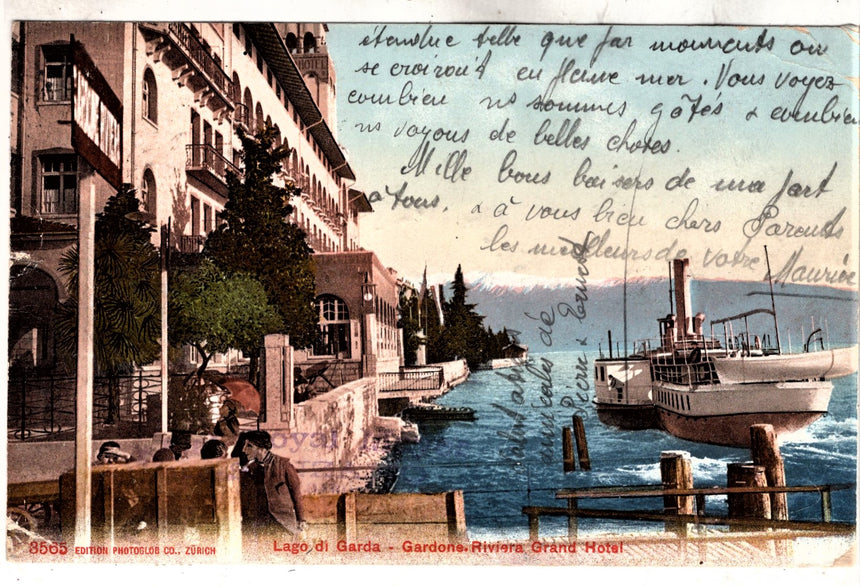 étendue telle que par moments on
se croirait en pleine mer. Vous voyez
combien ns sommes gâtés & combien
ns voyons de belles choses.
Mille bons baisers de ma part
à tous, & à vous bien chers Parents
les meilleurs de votre
Maurice
amicales de
Pierre & Ernest
HOTEL
Royal
8565 EDITION PHOTOGLOB CO., ZÜRICH
Lago di Garda - Gardone-Riviera Grand Hotel